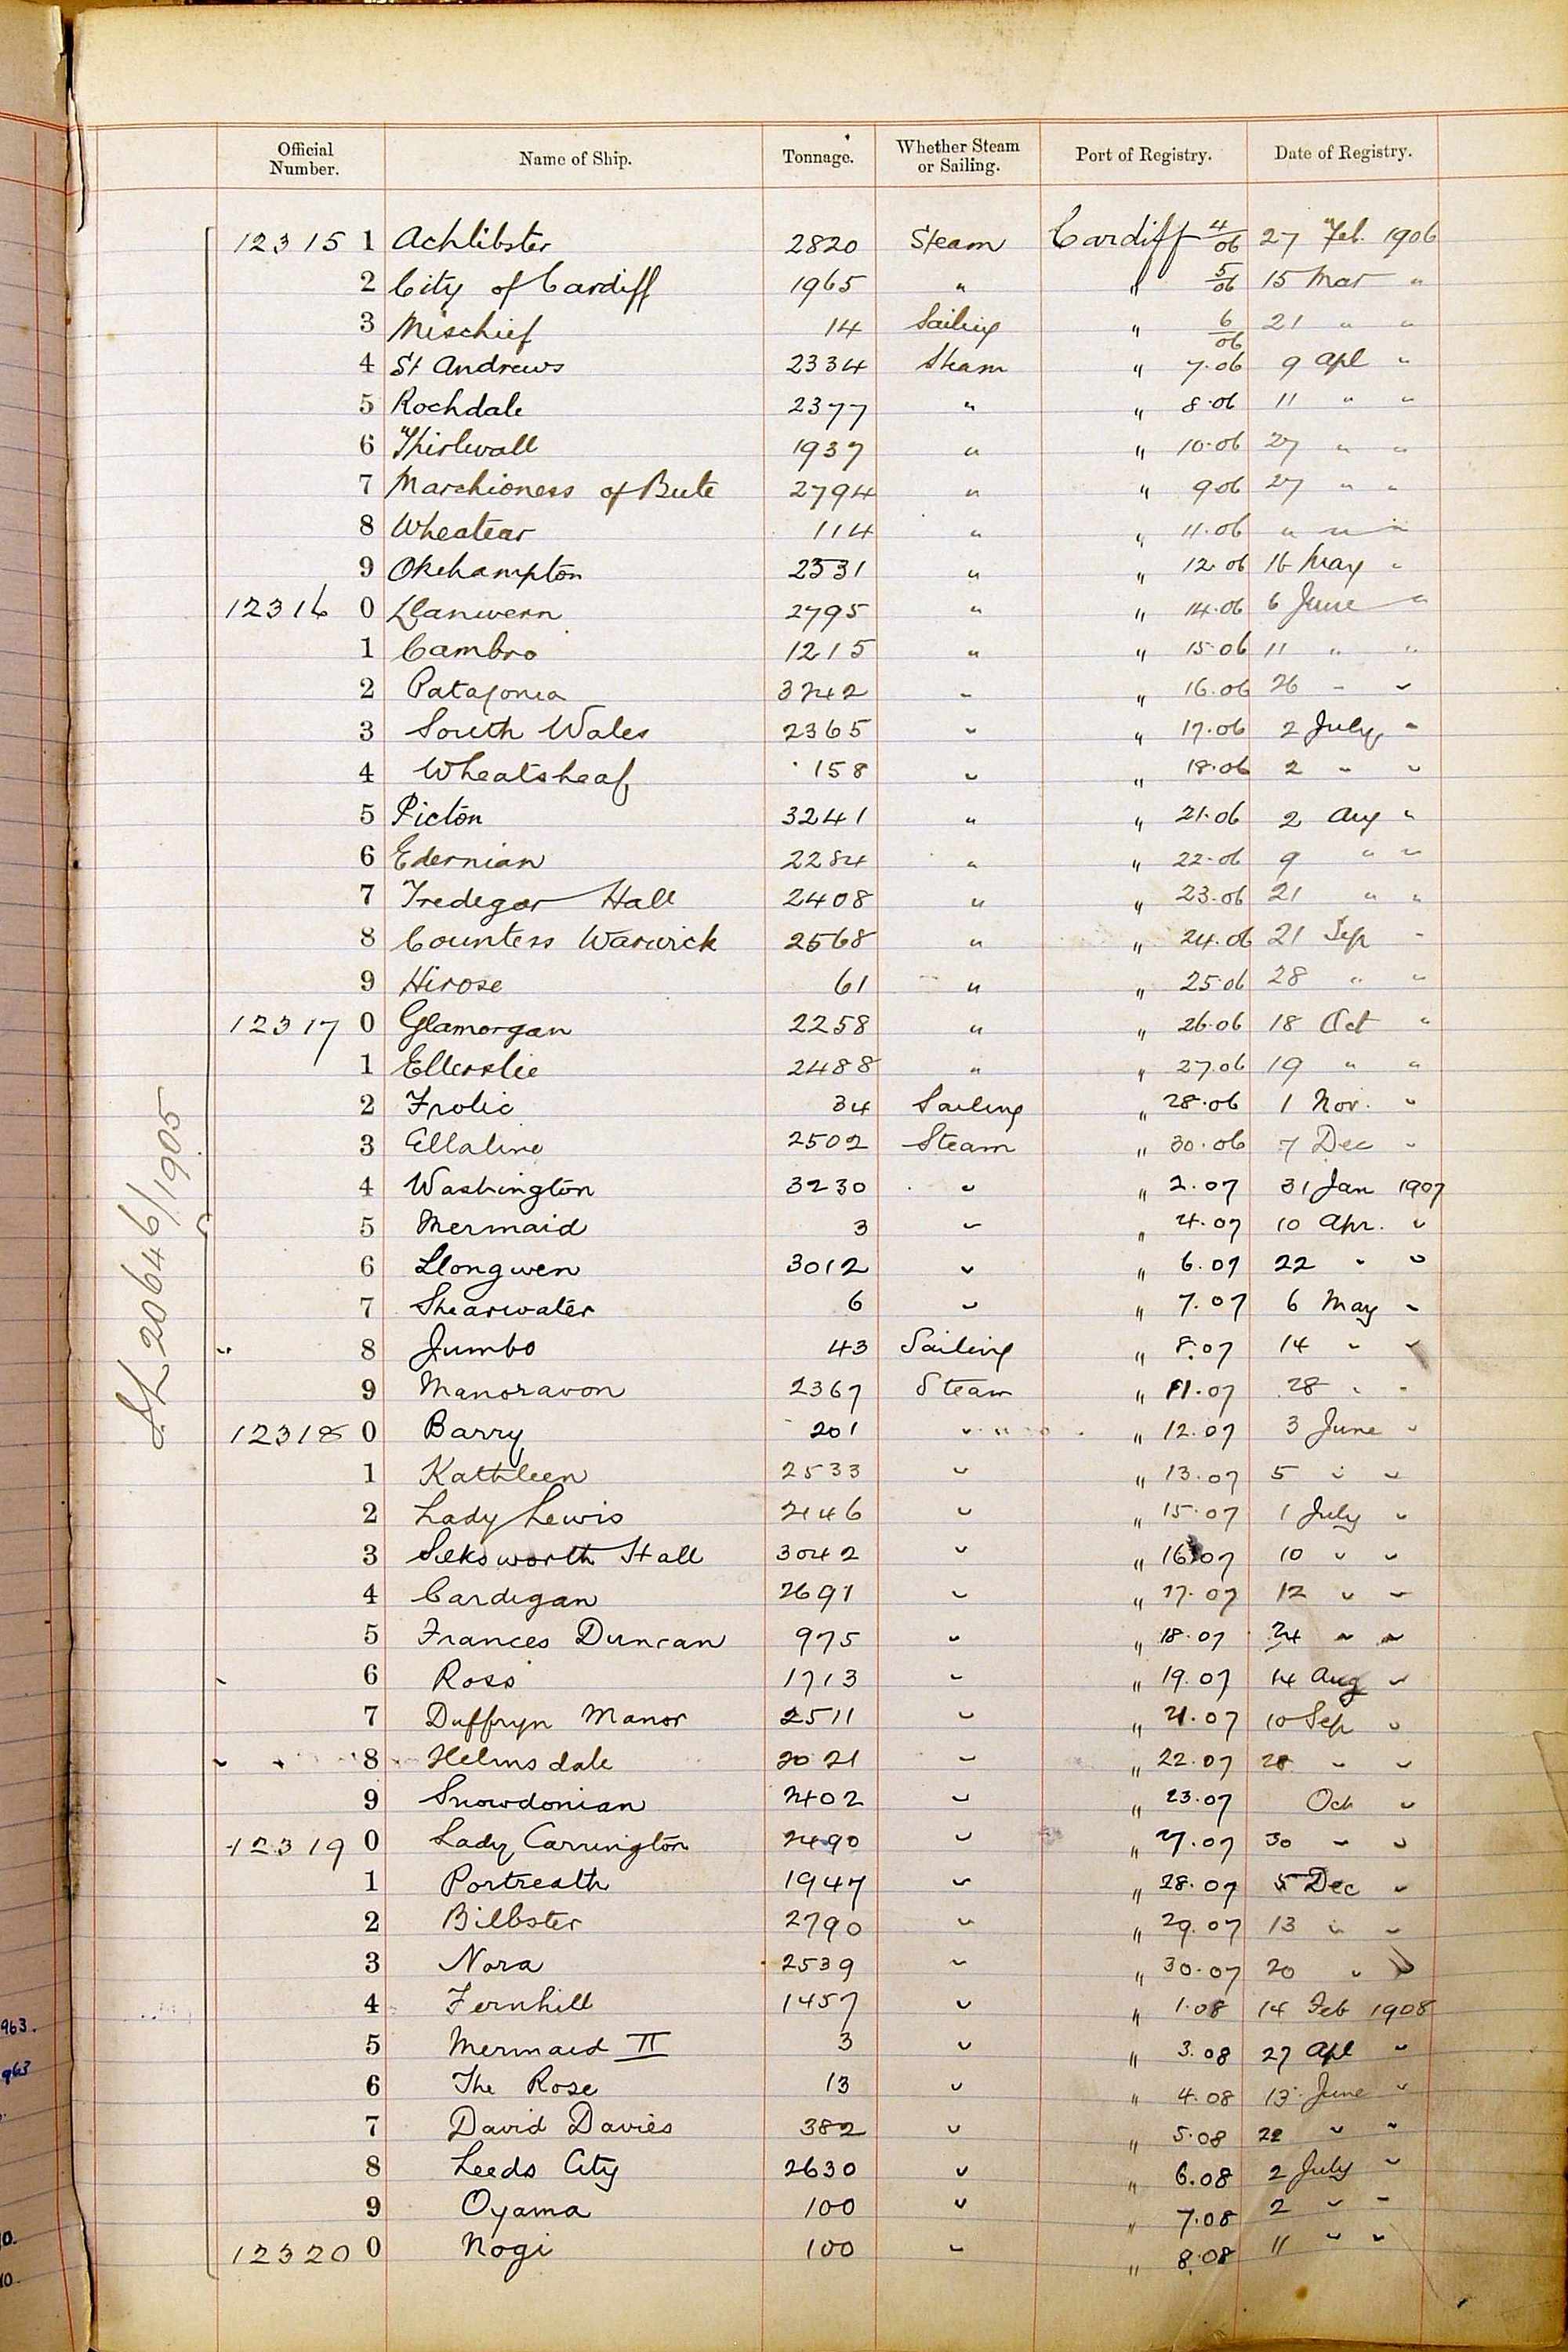 Official Number. Name of Ship. Tonnage. Whether Steam or Sailing. Port of Registry. Date of Registry.
12315 1 Achlibster 2820 Steam Cardiff 4/06 27 Feb. 1906
2 City of Cardiff 1965 " " 5/06 15 Mar "
3 Mischief 14 Sailing " 6/06 21 " "
4 St Andrews 2334 Steam " 7.06 9 Apl "
5 Rochdale 2377 " " 8.06 11 " "
6 Thirlwall 1937 " " 10.06 27 " "
7 Marchioness of Bute 2794 " " 9.06 27 " "
8 Wheatear 114 " " 11.06 " " "
9 Okehampton 2331 " " 12.06 16 May "
12316 0 Llanwern 2795 " " 14.06 6 June "
1 Cambro 1215 " " 15.06 11 " "
2 Patagonia 3242 " " 16.06 26 " "
3 South Wales 2365 " " 17.06 2 July "
4 Wheatsheaf 158 " " 18.06 2 " "
5 Picton 3241 " " 21.06 2 Aug "
6 Edernian 2284 " " 22.06 9 " "
7 Tredegar Hall 2408 " " 23.06 21 " "
8 Countess Warwick 2568 " " 24.06 21 Sep "
9 Hirose 61 " " 25.06 28 " "
12317 0 Glamorgan 2258 " " 26.06 18 Oct "
1 Ellerslie 2488 " " 27.06 19 " "
2 Frolic 34 Sailing " 28.06 1 Nov. "
3 Ellaline 2502 Steam " 30.06 7 Dec "
4 Washington 3230 " " 2.07 31 Jan 1907
5 Mermaid 3 " " 4.07 10 Apr. "
6 Llongwen 3012 " " 6.07 22 " "
7 Shearwater 6 " " 7.07 6 May "
8 Jumbo 43 Sailing " 8.07 14 " "
9 Manoravon 2367 Steam " 11.07 28 " "
12318 0 Barry 201 " " 12.07 3 June "
1 Kathleen 2533 " " 13.07 5 " "
2 Lady Lewis 2146 " " 15.07 1 July "
3 Silksworth Hall 3042 " " 16.07 10 " "
4 Cardigan 2691 " " 17.07 12 " "
5 Frances Duncan 975 " " 18.07 24 " "
6 Ross 1713 " " 19.07 14 Aug "
7 Duffryn Manor 2511 " " 21.07 10 Sep "
8 Helmsdale 2021 " " 22.07 28 " "
9 Snowdonian 2402 " " 23.07 Oct "
12319 0 Lady Carrington 2490 " " 27.07 30 " "
1 Portreath 1947 " " 28.07 5 Dec "
2 Bilbster 2790 " " 29.07 13 " "
3 Nora 2539 " " 30.07 20 " "
4 Fernhill 1457 " " 1.08 14 Feb 1908
5 Mermaid II 3 " " 3.08 27 Apl "
6 The Rose 13 " " 4.08 13 June "
7 David Davies 382 " " 5.08 22 " "
8 Leeds City 2630 " " 6.08 2 July "
9 Oyama 100 " " 7.08 2 " "
12320 0 Nogi 100 " " 8.08 11 " "
20646/1905
963.
963